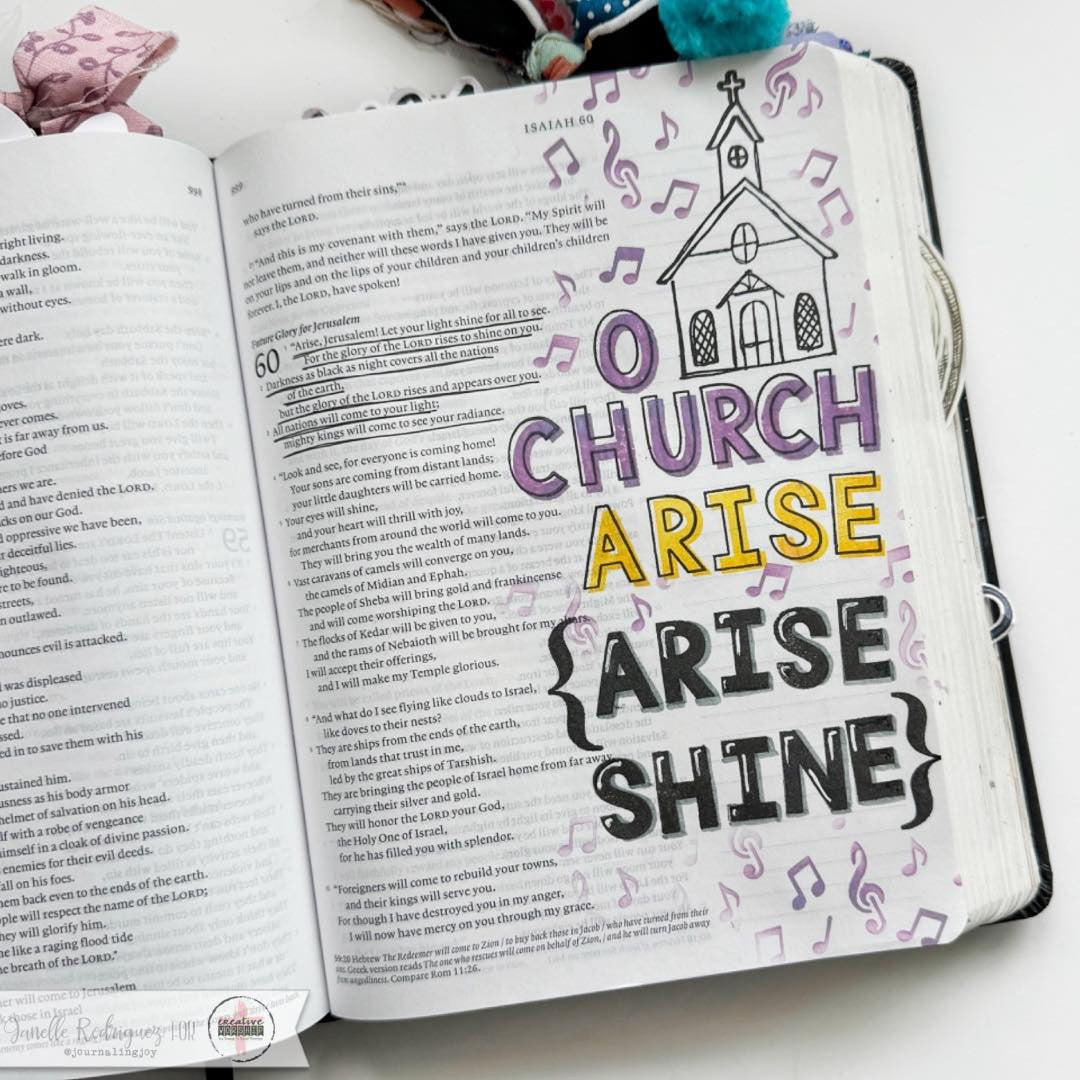 998
right living.
darkness.
walk in gloom.
a wall,
without eyes.
ere dark.
oves.
ever comes.
t is far away from us.
efore God
ners we are.
d and have denied the LORD.
cks on our God.
d oppressive we have been,
r deceitful lies.
ighteous,
re to be found.
streets,
n outlawed.
nounces evil is attacked.
l was displeased
o justice.
e that no one intervened
ssed.
ed in to save them with his
ustained him.
usness as his body armor
helmet of salvation on his head.
lf with a robe of vengeance
imself in a cloak of divine passion.
enemies for their evil deeds.
fall on his foes.
hem back even to the ends of the earth.
ople will respect the name of the LORD;
hey will glorify him.
me like a raging flood tide
he breath of the LORD.”
ner will come to Jerusalem
k those in Israel
ISAIAH 60
who have turned from their sins,”*
says the LORD.
21 “And this is my covenant with them,” says the LORD. “My Spirit will
not leave them, and neither will these words I have given you. They will be
on your lips and on the lips of your children and your children’s children
forever. I, the LORD, have spoken!
Future Glory for Jerusalem
60 1 “Arise, Jerusalem! Let your light shine for all to see.
For the glory of the LORD rises to shine on you.
2 Darkness as black as night covers all the nations
of the earth,
but the glory of the LORD rises and appears over you.
3 All nations will come to your light;
mighty kings will come to see your radiance.
4 “Look and see, for everyone is coming home!
Your sons are coming from distant lands;
your little daughters will be carried home.
5 Your eyes will shine,
and your heart will thrill with joy,
for merchants from around the world will come to you.
They will bring you the wealth of many lands.
6 Vast caravans of camels will converge on you,
the camels of Midian and Ephah.
The people of Sheba will bring gold and frankincense
and will come worshiping the LORD.
7 The flocks of Kedar will be given to you,
and the rams of Nebaioth will be brought for my altars.
I will accept their offerings,
and I will make my Temple glorious.
8 “And what do I see flying like clouds to Israel,
like doves to their nests?
9 They are ships from the ends of the earth,
from lands that trust in me,
led by the great ships of Tarshish.
They are bringing the people of Israel home from far away,
carrying their silver and gold.
They will honor the LORD your God,
the Holy One of Israel,
for he has filled you with splendor.
“Foreigners will come to rebuild your towns,
and their kings will serve you.
For though I have destroyed you in my anger,
I will now have mercy on you through my grace.
59:20 Hebrew The Redeemer will come to Zion / to buy back those in Jacob / who have turned from their
sins. Greek version reads The one who rescues will come on behalf of Zion, / and he will turn Jacob away
from ungodliness. Compare Rom 11:26.
O
CHURCH
ARISE
{ARISE
SHINE}
Janelle Rodriguez FOR
creative
WORSHIP
@journalingjoy